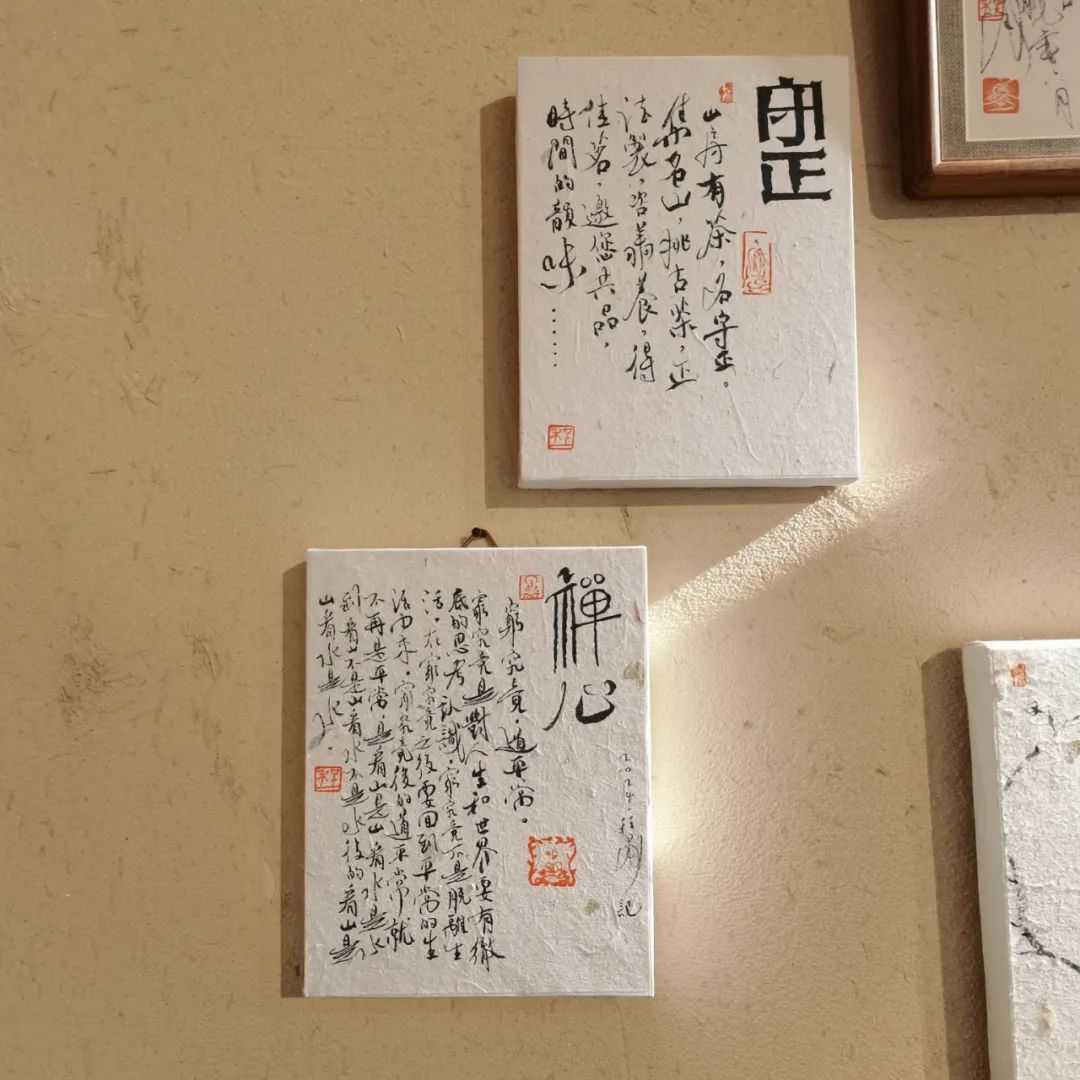 守正
山房有茶，名守正。
集名山，挑古茶，正
法製，容萬養，得
佳茗，邀您共品，
時間的韻味……
禪心
窮究竟，道平常。
窮究竟是對人生和世界要有徹
底的思考和認識，窮究竟不是脫離生
活，在窮究竟之後要回到平常的生
活中來。窮究竟後的道平常中就
不再是平常，是看山是山看水是水
到看山不是山看水不是水後的看山是
山看水是水。
記